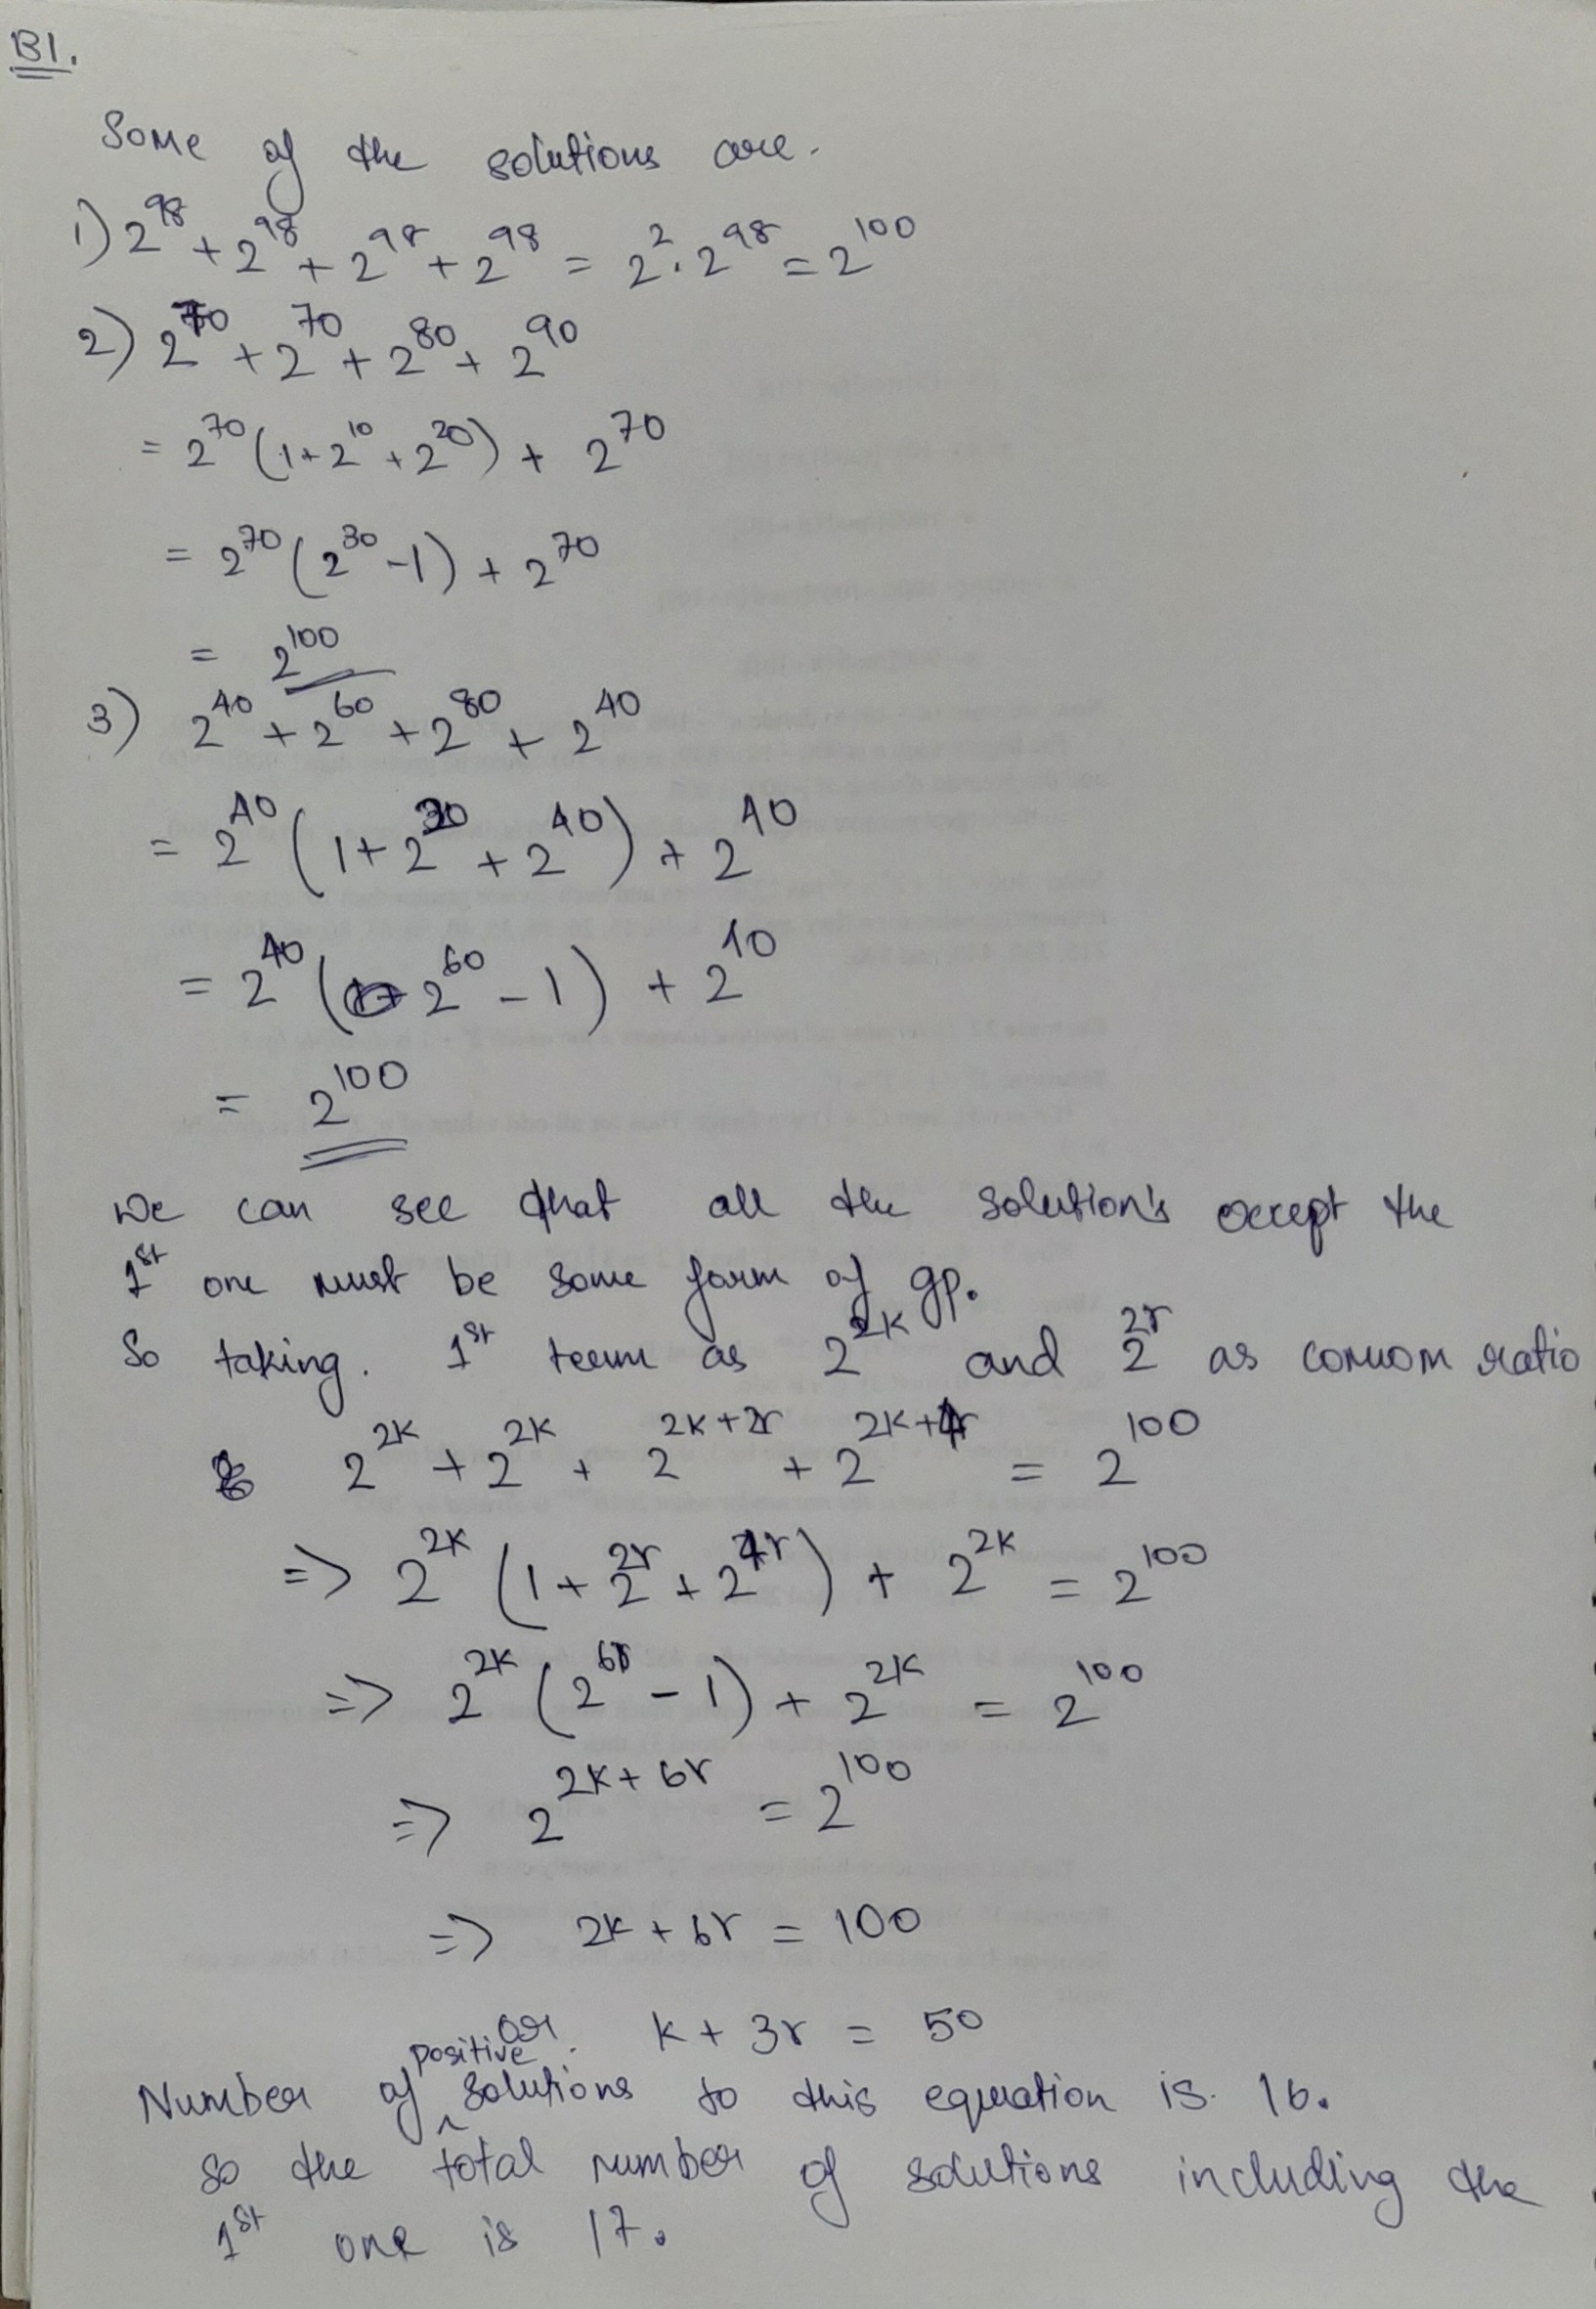 B1.
Some of the solutions are.
1) 2^98 + 2^98 + 2^98 + 2^98 = 2^2 . 2^98 = 2^100
2) 2^70 + 2^70 + 2^80 + 2^90
= 2^70 (1 + 2^10 + 2^20) + 2^70
= 2^70 (2^30 - 1) + 2^70
= 2^100
3) 2^40 + 2^60 + 2^80 + 2^40
= 2^40 (1 + 2^20 + 2^40) + 2^40
= 2^40 (2^60 - 1) + 2^40
= 2^100
We can see that all the solution's except the
1st one must be some form of gp.
So taking. 1st term as 2^2k and 2^2r as common ratio
2^2k + 2^2k + 2^2k+2r + 2^2k+4r = 2^100
=> 2^2k (1 + 2^2r + 2^4r) + 2^2k = 2^100
=> 2^2k (2^6r - 1) + 2^2k = 2^100
=> 2^2k+6r = 2^100
=> 2k + 6r = 100
or. k + 3r = 50
Number of positive solutions to this equation is. 16.
So the total number of solutions including the
1st one is 17.